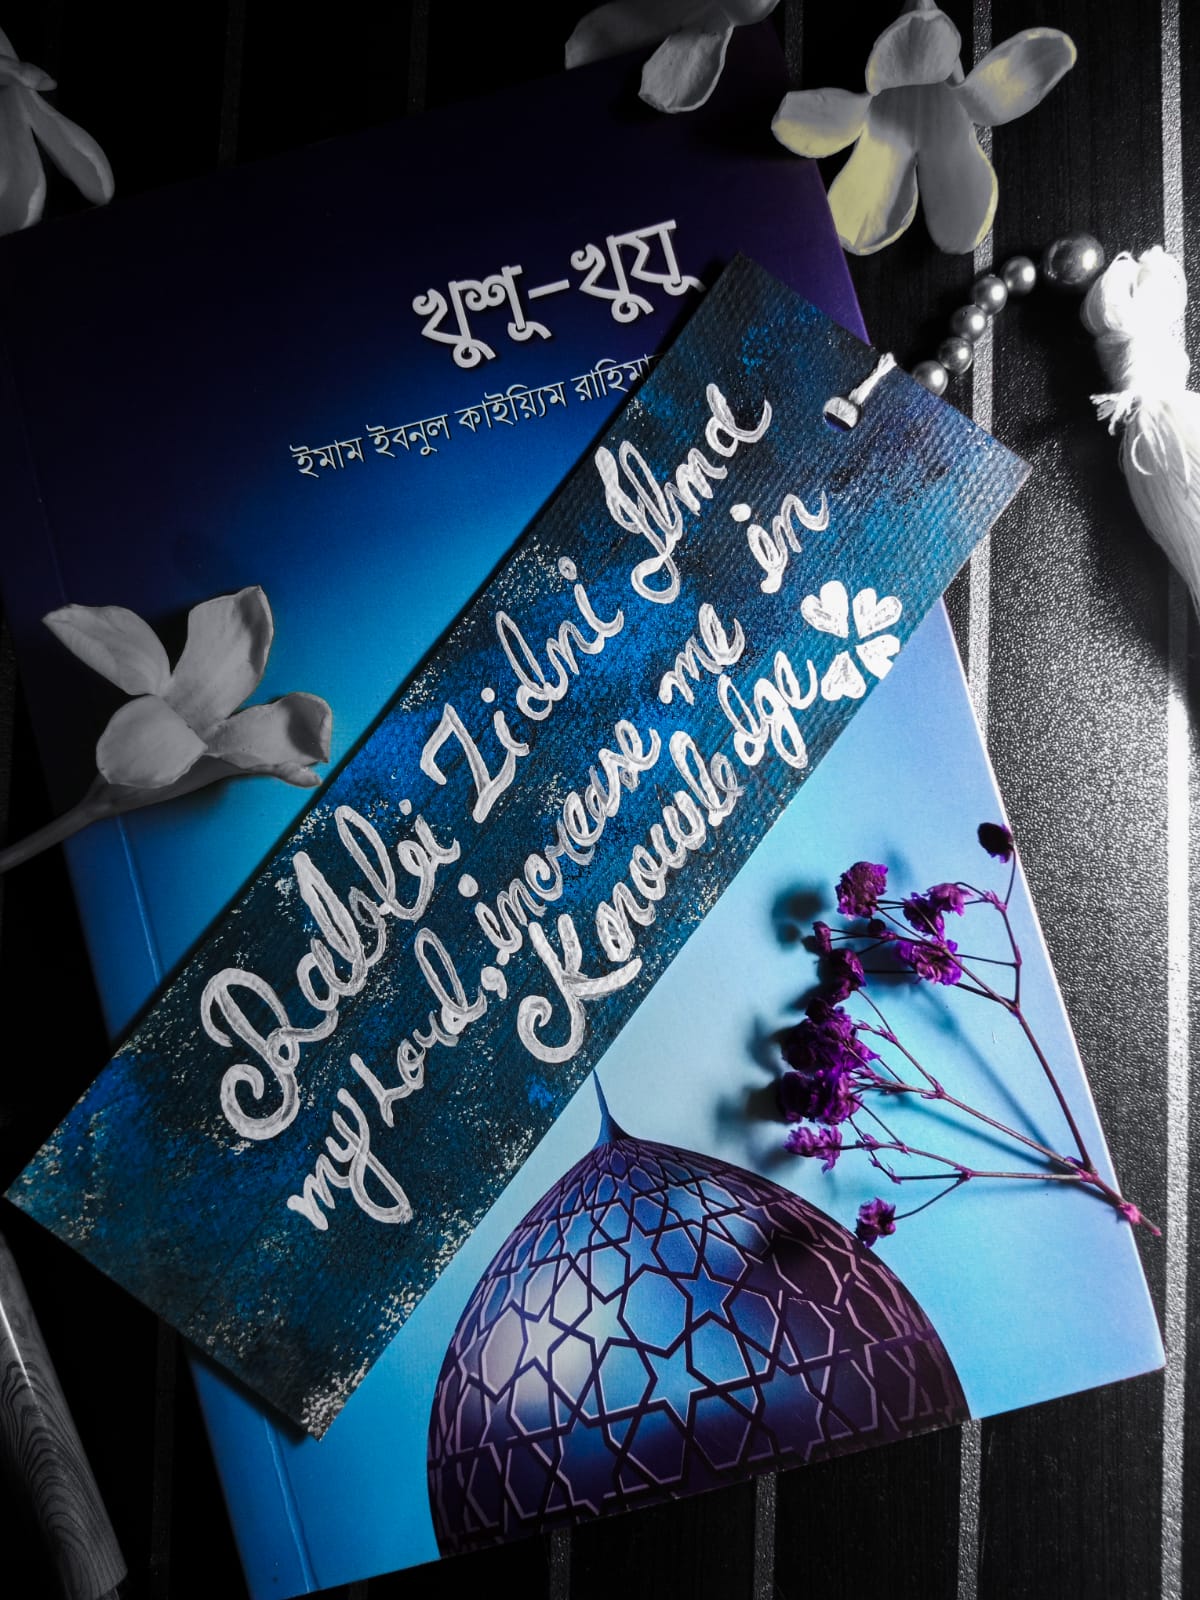 খুশূ-খুযূ
ইমাম ইবনুল কাইয়্যিম
Rabbi Zidni Ilma
my Lord, increase me in
Knowledge